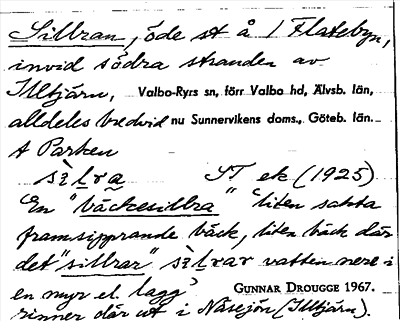 Sillran, öde st å 1 Flatebyn,
invid södra stranden av
Illtjärn, Valbo-Ryrs sn, förr Valbo hd, Älvsb. län,
alldeles bredvid nu Sunnervikens doms., Göteb. län.
A Parken
sìlra ST ek (1925)
En "bäckesillra" "liten sakta
framsipprande bäck, liten bäck där
det "sillrar" sìlrar vatten nere i
en myr el. lagg"
GUNNAR DROUGGE 1967.
rinner där ut i Nåsejön (Illtjärn).